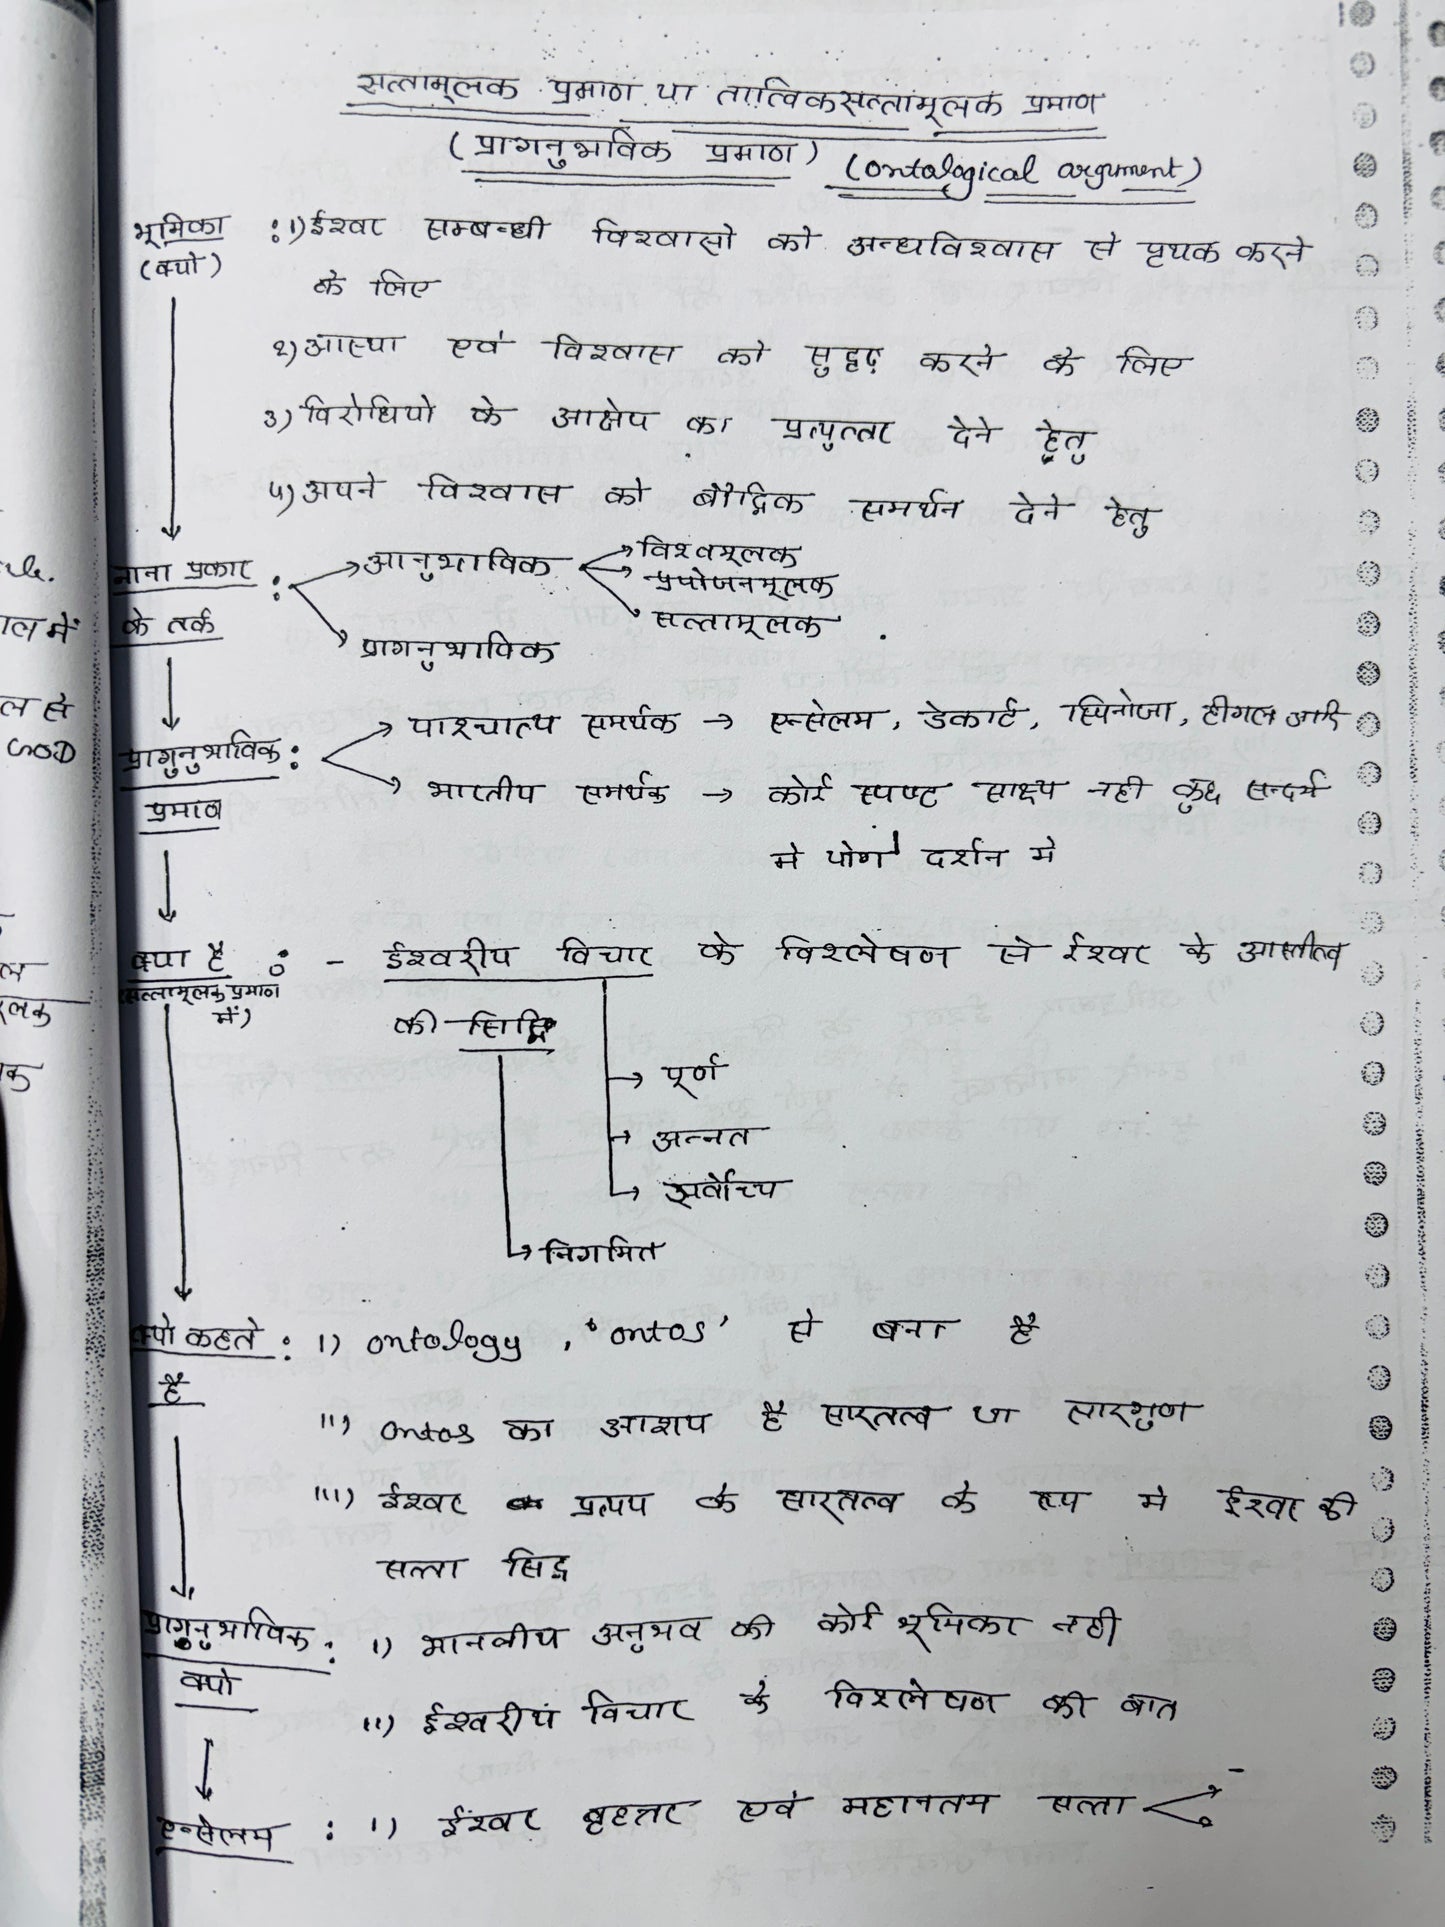 सत्तामूलक प्रमाण या तात्विकसत्तामूलक प्रमाण
(प्रागनुभाविक प्रमाण) (ontological argument)
भूमिका : 1) ईश्वर सम्बन्धी विश्वासो को अन्धविश्वास से पृथक करने
(क्यो)
के लिए
2) आस्था एवं विश्वास को सुदृढ़ करने के लिए
3) विरोधियो के आक्षेप का प्रत्युत्तर देने हेतु
4) अपने विश्वास को बौद्धिक समर्थन देने हेतु
नाना प्रकार : → आनुभाविक → विश्वमूलक
→ प्रयोजनमूलक
के तर्क → सत्तामूलक
→ प्रागनुभाविक
→ पाश्चात्य समर्थक → एन्सेलम, डेकार्ट, स्पिनोजा, हीगल आदि
प्रागुनुभाविक :
प्रमाण → भारतीय समर्थक → कोई स्पष्ट साक्ष्य नही कुछ सन्दर्भ
मे योग दर्शन मे
क्या है : - ईश्वरीय विचार के विश्लेषण से ईश्वर के आस्तीत्व
(सत्तामूलक प्रमाण
में)
की सिद्धि
→ पूर्ण
→ अन्नत
→ सर्वोच्य
→ निगमित
क्यो कहते : i) ontology, 'ontos' से बना है
है
ii) ontos का आशय है सारतत्व या सारगुण
iii) ईश्वर प्रत्यय के सारतत्व के रूप मे ईश्वर की
सत्ता सिद्ध
प्रागुनुभाविक : i) मानवीय अनुभव की कोई भूमिका नही
क्यो
ii) ईश्वरीय विचार के विश्लेषण की बात
एन्सेलम : i) ईश्वर बृहत्तर एवं महानतम सत्ता